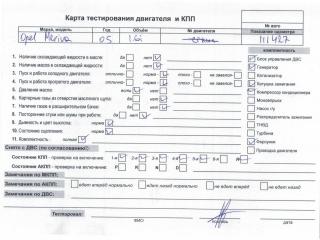 Карта тестирования двигателя и КПП
№ авто
Марка, модель Год Объём № двигателя Показания одометра
Opel Meriva 05 1.6i 111427
комплектность
1. Наличие охлаждающей жидкости в масле: да нет
2. Наличие масла в охлаждающей жидкости: да нет
3. Пуск и работа холодного двигателя: отлично норма плохо не завелся
4. Пуск и работа прогретого двигателя: отлично норма плохо не завелся
5. Давление масла: есть нет
6. Картерные газы из отверстия масляного щупа: да нет
7. Наличие газов в расширительном бачке: да нет
8. Посторонние стуки или шумы при работе: да нет
9. Дымность и цвет выхлопа: норма нет
10. Состояние сцепления: норма нет
11. Комплектность: полная нет
Блок управления ДВС
Катализатор
Генератор
Компрессор кондиционера
Моновпрыск
Насос г/у
Распределитель зажигания
ТНВД
Турбина
Форсунки
Проводка двигателя
Снято с ДВС (по согласованию):
Состояние КПП - проверка на включение: 1-я 2-я 3-я 4-я 5-я
Состояние АКПП - проверка на включение: P R N D
Замечания по МКПП:
Замечания по АКПП: едет вперёд нормально едет назад нормально не едет вперёд не едет назад
Замечания по ДВС:
Тестировал:
ФИО подпись дата